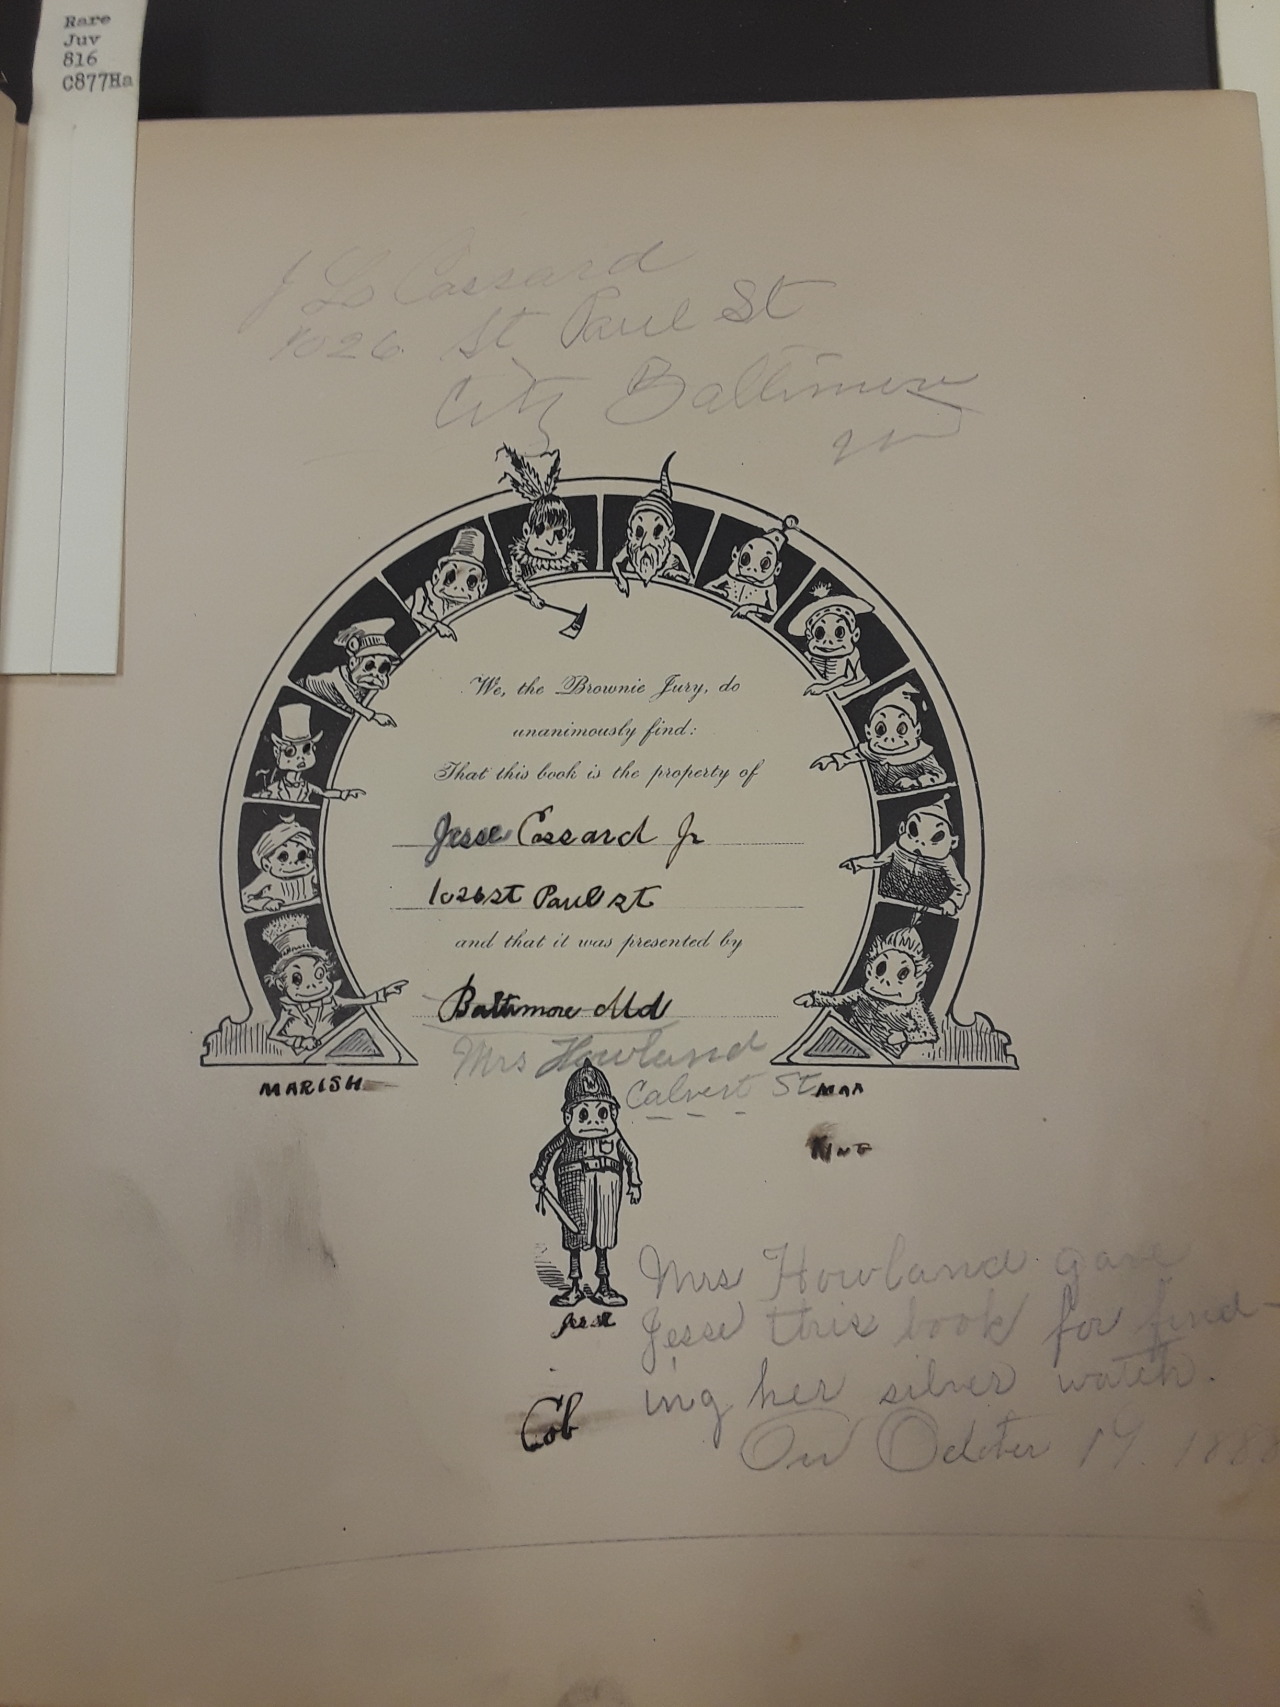 Rare
Juv
816
C877Ha
J L Cassard
1026 St Paul St
City Baltimore
Md
We, the Brownie Jury, do
unanimously find:
That this book is the property of
Jesse Cassard Jr
1026 st Paul st
and that it was presented by
Baltimore Md
Mrs Howland
Calvert St
MARISH
KING
Mrs Howland gave
Jesse this book for find-
ing her silver watch.
Jesse
Cob
On October 19. 188